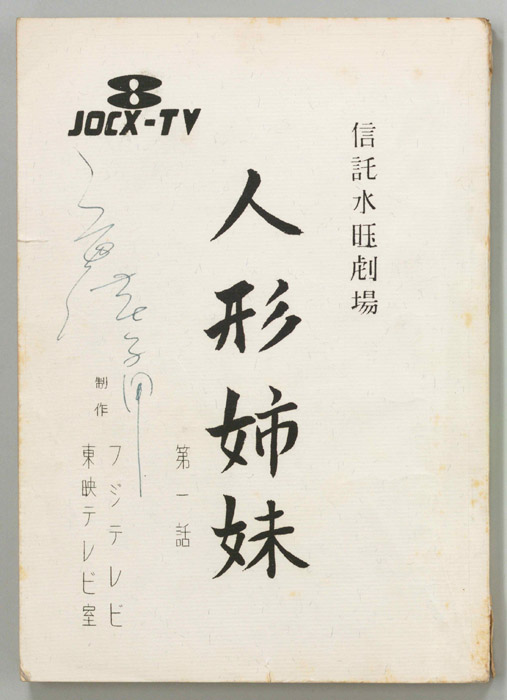 8
JOCX-TV
信託水曜劇場
人形姉妹
第一話
制作
フジテレビ
東映テレビ室